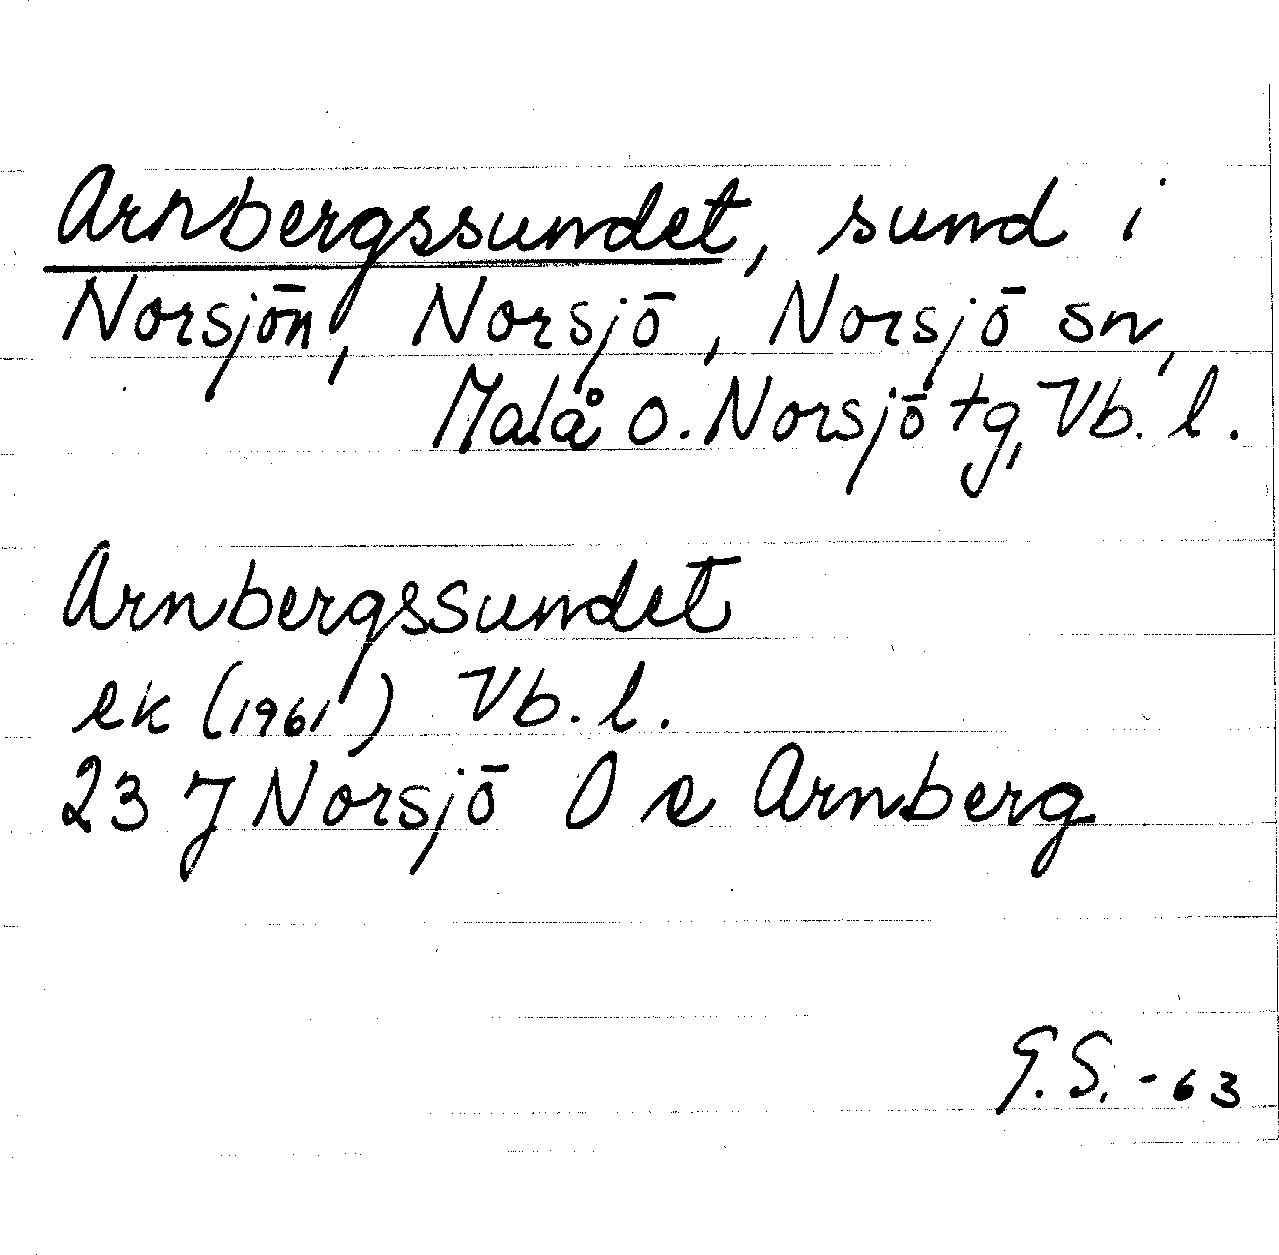 Arnbergssundet, sund i
Norsjön, Norsjö, Norsjö sn,
Malå o. Norsjö tg, Vb. l.
Arnbergssundet
ek (1961) Vb. l.
23 J Norsjö O e Arnberg
G.S. -63